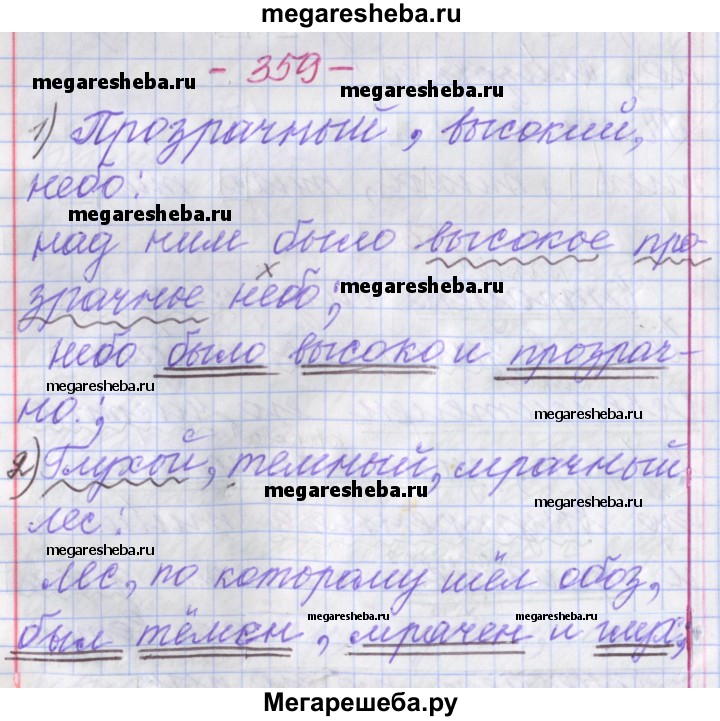 megaresheba.ru
- 359 -
megaresheba.ru
megaresheba.ru
1) Прозрачный, высокий,
небо:
megaresheba.ru
над ним было высокое про
зрачные небо;
megaresheba.ru
небо было высоко и прозрач-
megaresheba.ru
но.;
megaresheba.ru
2) Глухой, темный, мрачный
megaresheba.ru
megaresheba.ru
лес:
megaresheba.ru
лес, по которому шёл обоз,
megaresheba.ru
megaresheba.ru
был тёмен, мрачен и глух;
Мегарешеба.ру